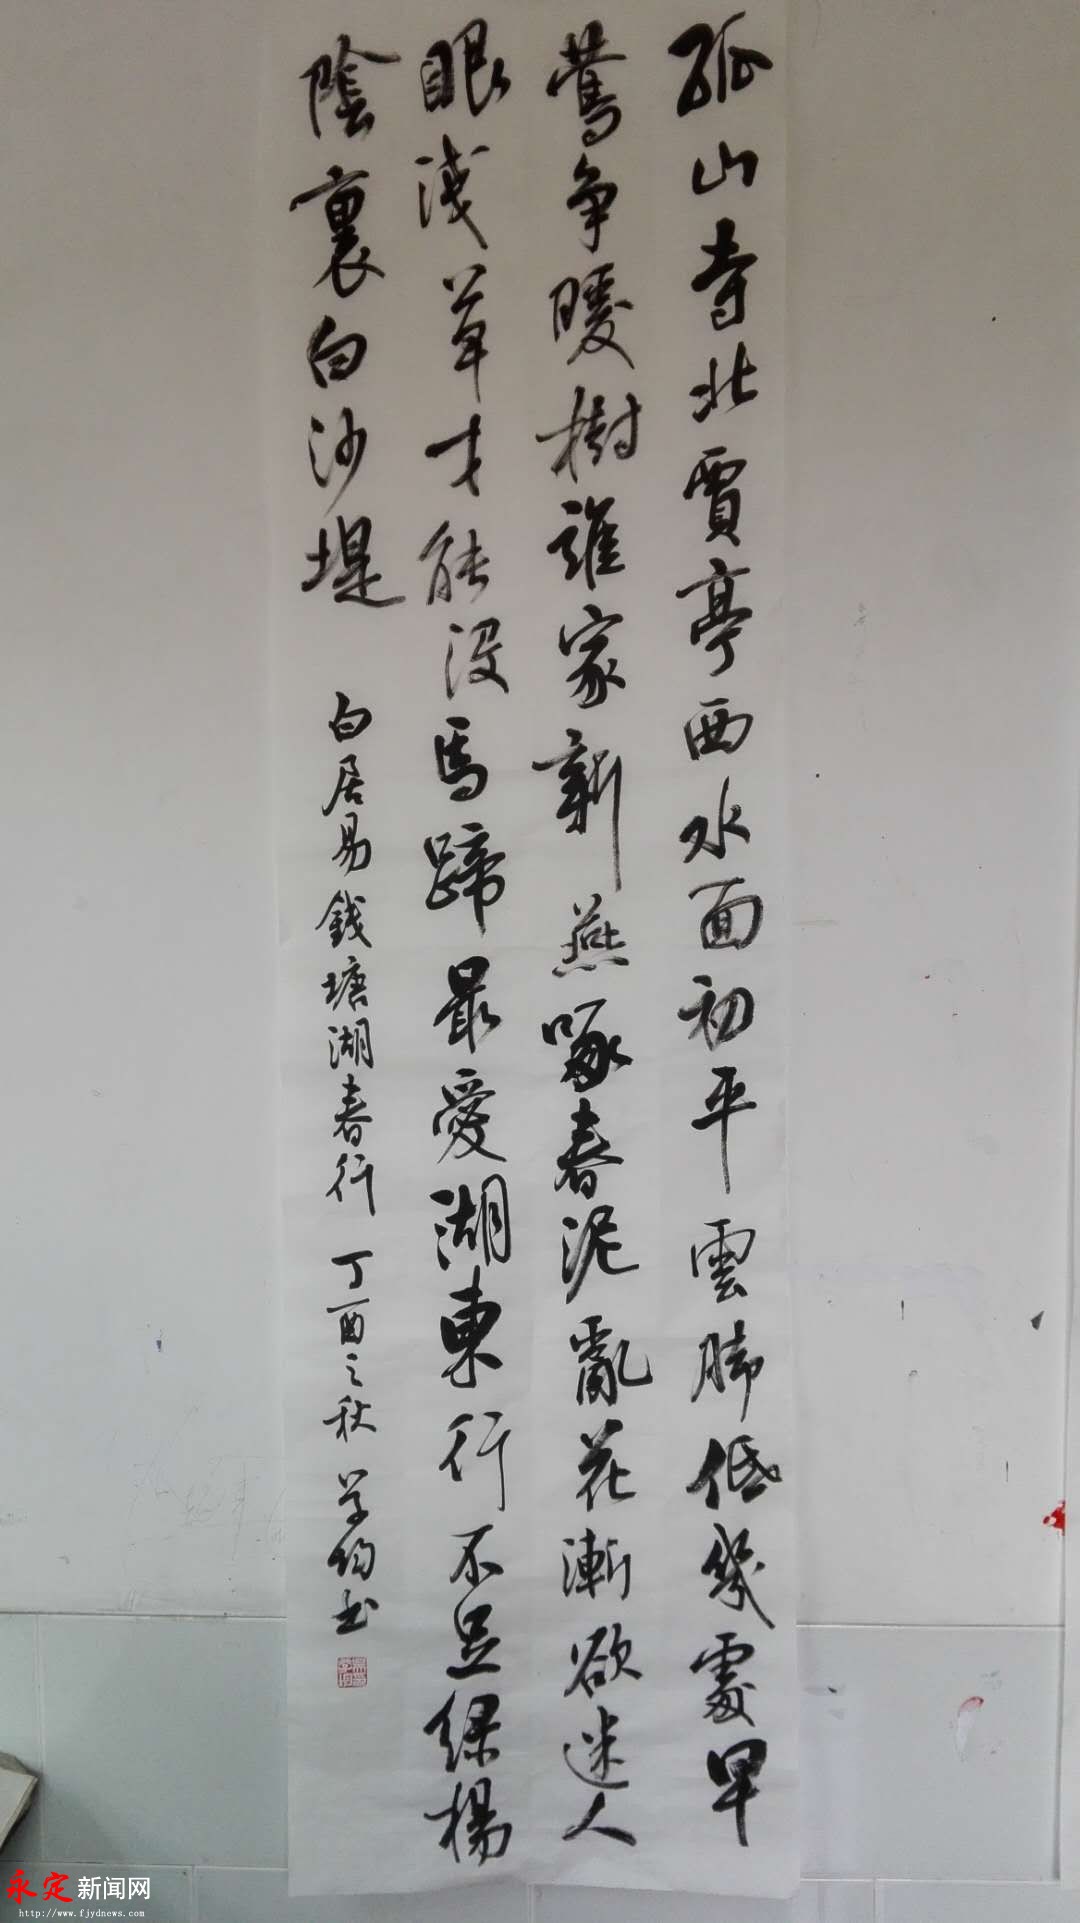 孤山寺北賈亭西水面初平雲腳低幾處早
鶯爭暖樹誰家新燕啄春泥亂花漸欲迷人
眼淺草才能沒馬蹄最愛湖東行不足綠楊
陰裏白沙堤
白居易錢塘湖春行 丁酉之秋 学鈞书
永定新闻网
http://www.fjydnews.com